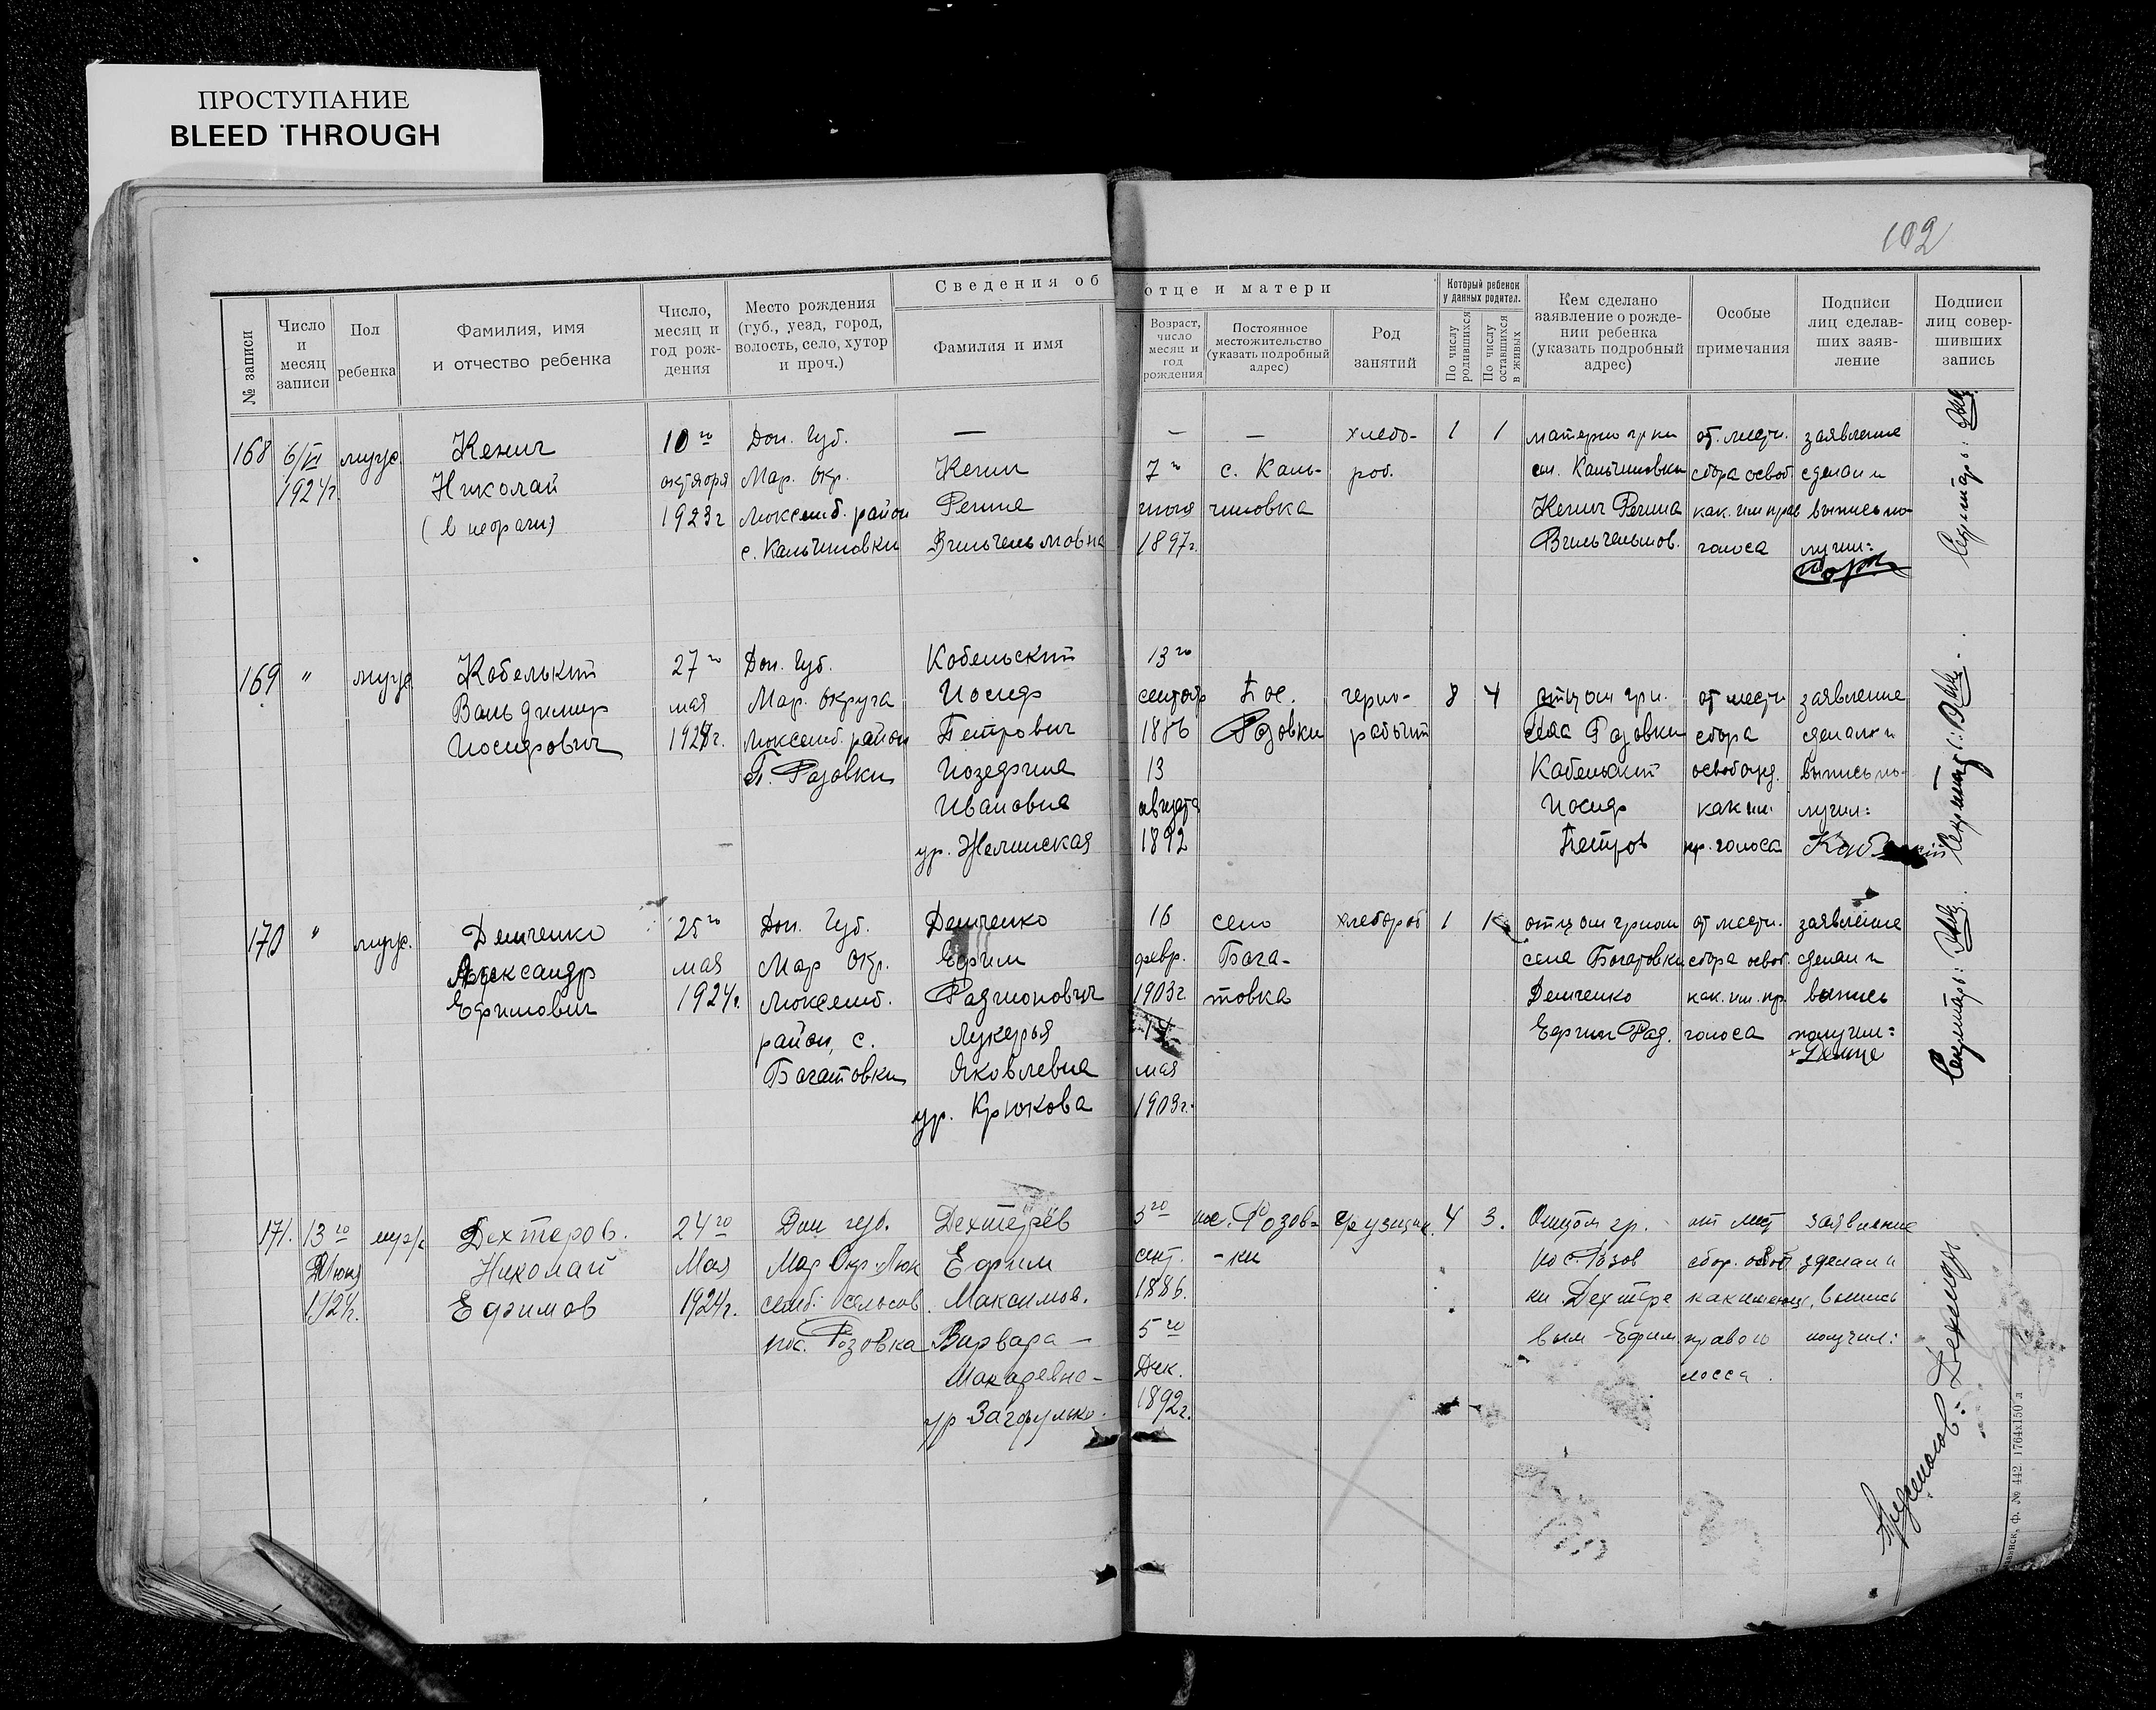 ПРОСТУПАНИЕ
BLEED THROUGH
102
Сведения об отце и матери
№ записи
Число и месяц записи
Пол ребенка
Фамилия, имя и отчество ребенка
Число, месяц и год рождения
Место рождения (губ., уезд, город, волость, село, хутор и проч.)
Фамилия и имя
Возраст, число месяц и год рождения
Постоянное местожительство (указать подробный адрес)
Род занятий
Который ребенок у данных родител.
По числу родившихся
По числу оставшихся в живых
Кем сделано заявление о рождении ребенка (указать подробный адрес)
Особые примечания
Подписи лиц сделавших заявление
Подписи лиц совершивших запись
168
6/VI
1924г.
муж.
Кенич
Николай
10го
октября
1923г
Дон. Губ.
Мар. Окр.
Люксемб. район
с. Кальчиновки
—
Кенич
Регина
Вильгельмовна
—
7го
июня
1897г.
—
с. Каль-
чиновка
хлебо-
роб.
1
1
матерью гр-ки
Кальчиновки
Кенич Регина
Вильгельмов.
сбора освоб
голоса
заявление
сделал и
выпись по-
лучил:
Секретарь:
169
"
муж
Кобельский
Вальдимир
Иосифович
27го
мая
1924г.
Дон. Губ.
Мар. Округа
Люксемб. район
п. Розовки
Кобельский
Иосиф
Петрович
Иозефина
Ивановна
ур. Желинская
13го
сентяб
1886
13
августа
1892
Пос.
Розовки
черно-
рабочий
8
4
отцом гр.
Розовки
Кобельский
Иосиф
Петров
сбора
освобожд.
пр. голоса
заявление
сделал и
выпись по-
лучил:
Секретарь:
170
"
муж.
Демченко
Александр
Ефимович
25го
мая
1924г.
Дон. Губ.
Мар Окр.
Люксемб.
район, с.
Богатовки
Демченко
Ефим
Радионович
Лукерья
Яковлевна
ур. Крюкова
16
февр.
1903г
мая
1903г.
село
Бога-
товка
хлебороб
1
1
отцом
села Богатовки
Демченко
Ефим Рад.
сбора освоб.
как. им. пр.
голоса
заявление
сделал и
выпись
получил:
Демче
Секретарь:
171.
13го
Июня
1924г.
муж
Дехтеров.
Николай
Ефимов
24го
Мая
1924г.
Дон губ.
Мар Окр. Люк
семб. сельсов.
пос. Розовка
Дехтерёв
Ефим
Максимов.
Варвара —
Макаревна -
5го
сент.
1886.
5го
Дек.
1892г.
пос. Розов-
-ки
4
3.
Отцом гр.
пос. Розов
ки Дехтере
вым Ефим
сбор. освоб
правом
заявление
зделал и
выпись
получил:
ф. № 442. 1764x150 л